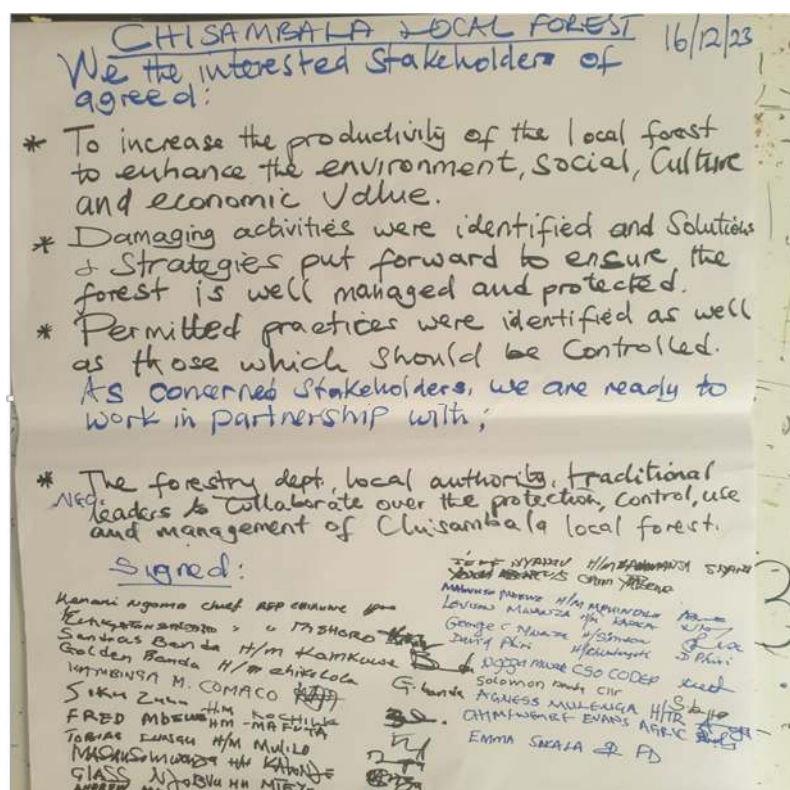 CHISAMBALA LOCAL FOREST 16/12/23
We the interested Stakeholders of
agreed:
* To increase the productivity of the local forest
to enhance the environment, Social, Culture
and economic Value.
* Damaging activities were identified and Solutions
& Strategies put forward to ensure the
forest is well managed and protected.
* Permitted practices were identified as well
as those which Should be Controlled.
As concerned Stakeholders, we are ready to
work in partnership with;
* The forestry dept, local authority, traditional
leaders to Collaborate over the protection, Control, use
and management of Chisambala local forest.
Signed:
Ngoma chief REP
Banda H/m Kamkuwe
Golden Banda H/m Chikolola
M. COMACO
SIKU ZULU HM
FRED MBEWE HM - MAFUTA
H/M Mulilo
GLASS NJOBVU HM
NYANDU H/M
H/M
MWANZA H/M
George C H/
David Phiri D Phiri
CSO CODEP
Solomon Cllr
G. banda AGNESS MULENGA H/TR
EVANS AGRIC
EMMA SAKALA FD